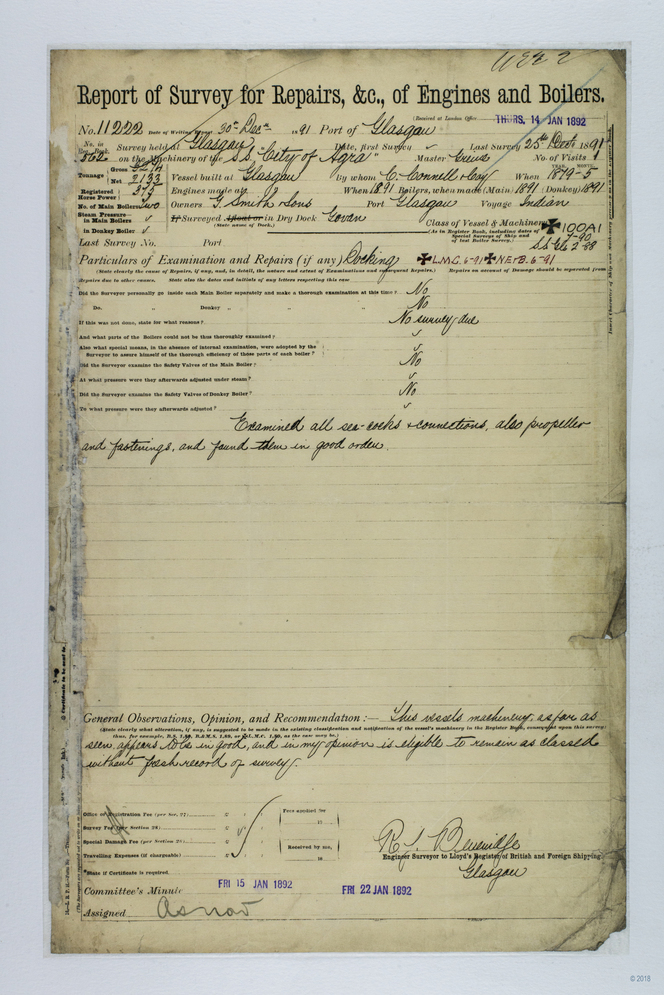 Report of Survey for Repairs, &c., of Engines and Boilers.
(Received at London Office THURS. 14 JAN 1892
No. 11222 Date of Writing 30th Decr. 1891 Port of Glasgow
No. in Reg. Book. 562 Survey held at Glasgow Date, first Survey Last Survey 25th Decr 1891
on the Machinery of the S.S. "City of Agra" Master No. of Visits 1
Tonnage Gross Net 2133 Vessel built at Glasgow By whom C. Connell & Coy When 1879-5
Registered Horse Power Engines made at When 1891 Boilers, when made (Main) 1891 (Donkey) 1891
No. of Main Boilers Two Owners G. Smith & Sons Port Glasgow Voyage Indian
Steam Pressure in Main Boilers ✓ If Surveyed Afloat or in Dry Dock Govan
(State name of Dock.)
Class of Vessel & Machinery ✠100A1
(As in Register Book, including dates of Special Surveys of Ship and of last Boiler Survey.)
in Donkey Boiler ✓
Last Survey No. Port
Particulars of Examination and Repairs (if any) Docking ✠L.M.C. 6-91 ✠N.E&B. 6-91
(State clearly the cause of Repairs, if any, and, in detail, the nature and extent of Examinations and consequent Repairs.) Repairs on account of Damage should be separated from
Repairs due to other causes. State also the dates and initials of any letters respecting this case
Did the Surveyor personally go inside each Main Boiler separately and make a thorough examination at this time? No
Do. „ Donkey „ „ „ No
If this was not done, state for what reasons? No survey due
And what parts of the Boilers could not be thus thoroughly examined? ✓
Also what special means, in the absence of internal examination, were adopted by the
Surveyor to assure himself of the thorough efficiency of those parts of each boiler? ✓
Did the Surveyor examine the Safety Valves of the Main Boiler? No
At what pressure were they afterwards adjusted under steam? ✓
Did the Surveyor examine the Safety Valves of Donkey Boiler? No
To what pressure were they afterwards adjusted? ✓
Examined all sea-cocks & connections, also propeller
and fastenings, and found them in good order.
General Observations, Opinion, and Recommendation:— This vessels machinery, as far as
(State clearly what alteration, if any, is suggested to be made in the existing classification and notification of the vessel's machinery in the Register Book, consequent upon this survey;
seen, appears to be in good, and in my opinion is eligible to remain as classed
without fresh record of survey.
Office or Registration Fee (per Sec. 27) £ Fees applied for
Survey Fee (per Section 28) £
Special Damage Fee (per Section 28) £ Received by me,
Travelling Expenses (if chargeable) £ 18
Engineer Surveyor to Lloyd's Register of British and Foreign Shipping.
*State if Certificate is required Glasgow
Committee's Minute FRI 15 JAN 1892 FRI 22 JAN 1892
Assigned As now
© 2018